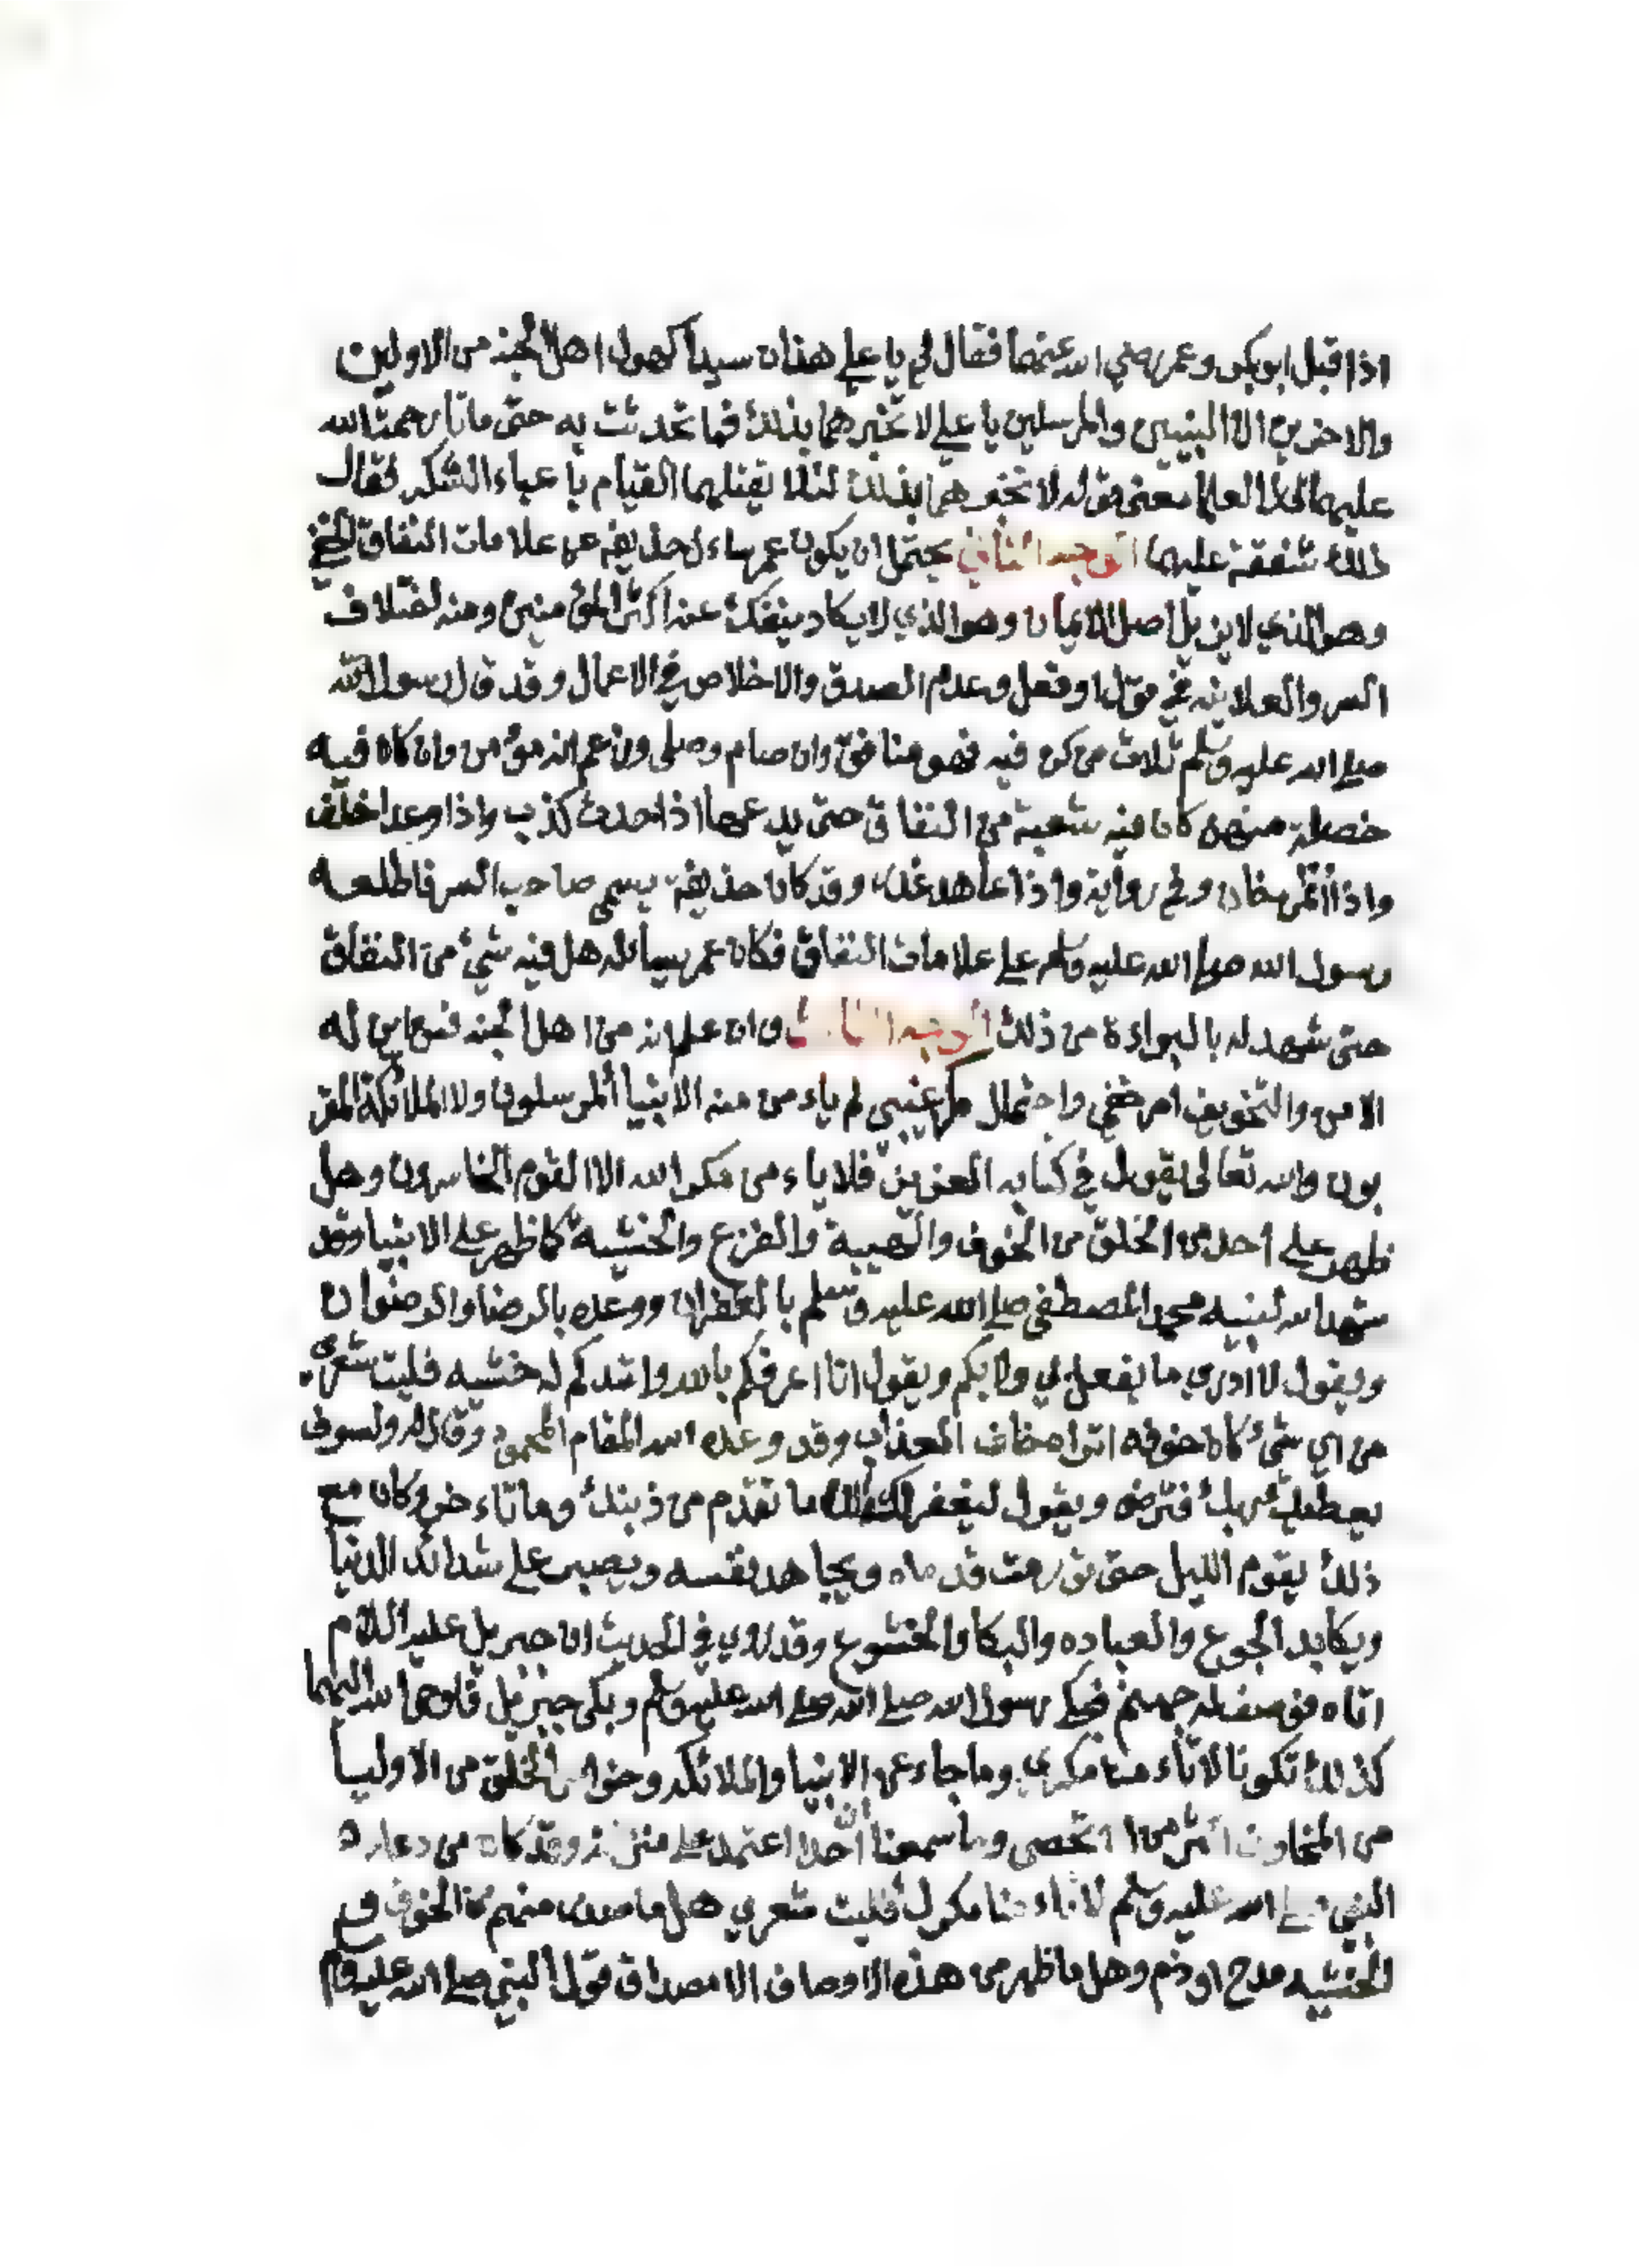 اذا قبل ابو بكر وعمر رضي الله عنهما فقال لي يا علي هذان سيدا كهول اهل الجنه من الاولين
والاخرين الا النبيين والمرسلين يا علي لا تخبرهما بذلك فما تحدثت به حتى ماتا رحمت الله
عليهما العلما معنى قوله لا تخبرهما بذلك لئلا يقتلهما القيام با عباء الشكر فقال
ذلك شفقة عليهما الوجه الثاني يحتمل ان يكون عمر ساءل حذيفه عن علامات النفاق الخفي
وهو الذي لا يزيل اصل الايمان وهو الذي لا يكاد ينفك عنه اكثر المؤمنين ومنه اختلاف
السر والعلانيه في قول او فعل وعدم الصدق والاخلاص في الاعمال وقد قال رسول الله
صلي الله عليه وسلم ثلاث من كن فيه فهو منافق وان صام وصلى وزعم انه مؤمن وان كان فيه
خصلة منهن كان فيه شعبة من النفاق حتى يدعها اذا حدث كذب واذا وعد اخلف
واذا أتمن خان وفي رواية واذا عاهد غدر وقد كان حذيفة يسمى صاحب السر فاطلعه
رسول الله صلي الله عليه وسلم علي علامات النفاق فكان عمر يسائله هل فيه شيء من النفاق
حتى شهد له بالبراءة من ذلك الوجه الثالث وان علم انه من اهل الجنه فمن اين له
الامن والتخويف امر خفي واحتمال مكر غيبي لم ياءمن منه الانبيا المرسلون ولا الملائكة المقر
بون والله تعالى يقول في كتابه العزيز فلا ياءمن مكر الله الا القوم الخاسرون وهل
ظهر علي احد من الخلق من الخوف والهيبة والفزع والخشية كما ظهر علي الانبيا وقد
شهد الله لنبيه محمد المصطفي صلي الله عليه وسلم بالغفران ووعده بالرضا والرضوان
ويقول لا ادري ما يفعل بي ولا بكم ويقول انا اعرفكم بالله واشدكم له خشيه فليت شعري
من اي شيء كان خوفه اتراه خاف العذاب وقد وعده الله المقام المحمود وقال له ولسوف
يعطيك ربك فترضى ويقول ليغفر لك الله ما تقدم من ذنبك وما تاءخر وكان مع
ذلك يقوم الليل حتى تورمت قدماه ويجاهد نفسه ويصبر علي شدائد الدنيا
ويكابد الجوع والعباده والبكا والخشوع وقد روي في الحديث ان جبريل عليه السلام
اتاه فوصف له جهنم فبكي رسول الله صلي الله عليه وسلم وبكى جبريل فاوحى الله اليهما
كذلك تكونا لا تاءمنا مكري وما جاء عن الانبيا والملائكه وخواص الخلق من الاوليا
من المخاوف اكثر من ان تحصى وما سمعنا ان احدا اعتمد علي منزلته وقد كان من دعاء
النبي صلي الله عليه وسلم لا تاءمنا مكرك فليت شعري هل ما صدر منهم من الخوف و
الخشيه مدح او ذم وهل ما ظهر من هذه الاوصاف الا مصداق قول النبي صلي الله عليه وسلم